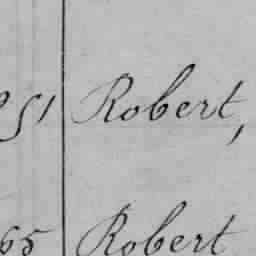 251 Robert,
65 Robert